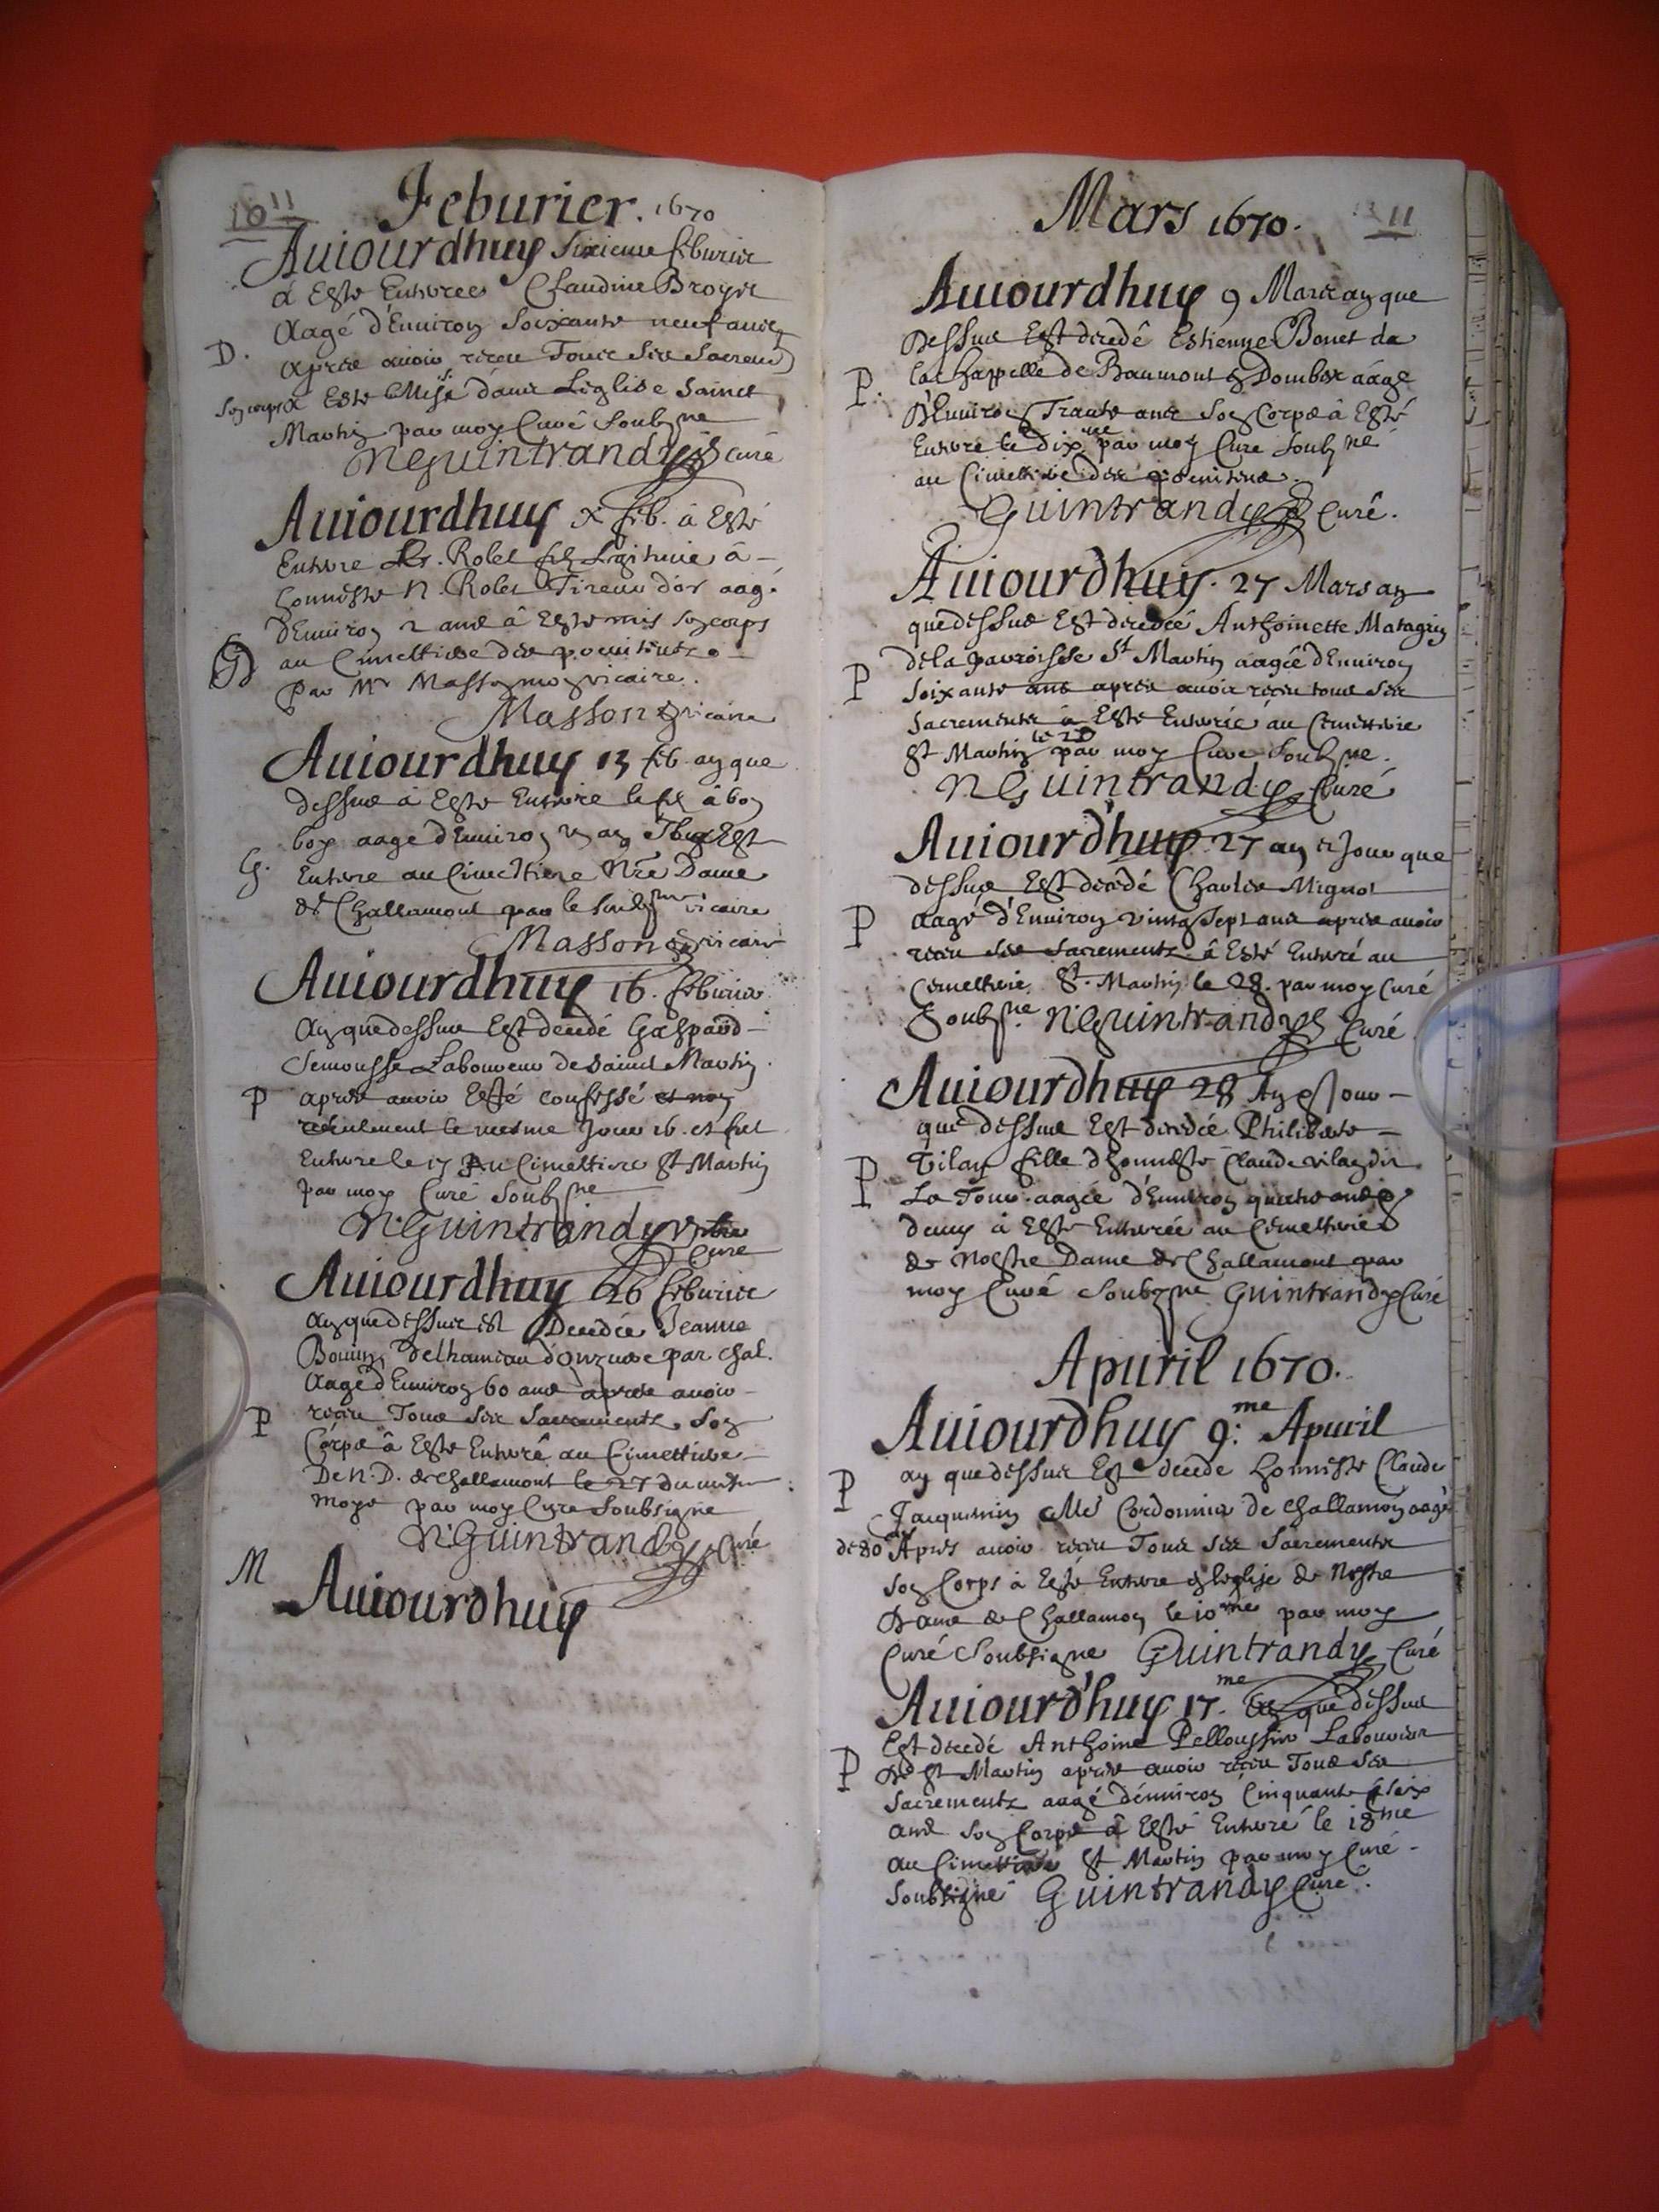 10 11
Feburier. 1670
Auiourdhuy sixieme feburier
à Esté Enterrée Claudine Broyer
Aagé d'Enuiron soixante neuf ans
D. apres auoir receu Tous ses sacrem
son corps à Esté Mis dans L'eglise sainct
Martin par moy Curé soubsne
NGuintrandy Curé
Auiourdhuy x feb. à Esté
Enterre Robet fils legitime à
honneste N. Robet Tireur d'or aagé
d'Enuiron 2 ans à Esté mis son corps
au Cimettiere des penitents
par Mr Masson mon vicaire.
Masson vicaire
Auiourdhuy 13 feb. an que
dessus à Esté Enterre le fils à bon
boy aagé d'Enuiron un an Est
G. Enterre au Cimettiere Nre Dame
de Challamont par le soubsne vicaire
Masson vicaire
Auiourdhuy 16. feburier
An que dessus Est decedé Gaspard
Semousse Laboureur de sainct Martin
P apres auoir Esté confessé et non
le mesme Jour 16. et fut
Enterre le 17 Au Cimettiere St Martin
par moy Curé soubsne
NGuintrandy
Curé
Auiourdhuy 26 feburier
An que dessus est Decedée Jeanne
Bouin, del hameau par Chal.
Aagé d'Enuiron 60 ans apres auoir
P receu Tous ses sacrements. son
Corps à Esté Enterré au Cimettiere
De N. D. de Challamont le 27 du mesme
moys par moy Curé soubsigne
NGuintrandy Curé
M Auiourdhuy
11
Mars 1670.
Auiourdhuy 9 Mars an que
Dessus Est decedé Estienne Bonet de
P. la chappelle de Baumont en Dombes aagé
D'Enuiron Trante ans son Corps à Esté
Enterré le Dixme par moy Cure soubsné
au Cimettiere des penitens.
Guintrandy Curé.
Auiourdhuy. 27 Mars an
que dessus Est decedée Anthoinette Matagrin
de la parroisse St Martin aagée d'Enuiron
P soixante ans apres auoir receu tous ses
sacrements à Esté Enterrée au Cemettiere
St Martin le 28 par moy Curé soubsne.
NGuintrandy Curé
Auiourdhuy 27 an et Jour que
dessus Est decédé Charles Mignot
P aagé d'Enuiron vingt sept ans apres auoir
receu ses sacrements à Esté Enterré au
Cemettiere St. Martin le 28. par moy Curé
Soubsne. NGuintrandy Curé
Auiourdhuy 28 An et Jour
que dessus Est decedée Philiberte
P Vilan fille d'honneste Claude vilan dit
La Tour. aagée d'Enuiron quatre ans et
demy à Esté Enterrée au Cemettiere
de Nostre Dame de Challamont par
moy Curé Soubsgne Guintrandy Curé
Apuril 1670.
Auiourdhuy 9.me Apuril
P an que dessus Est decede honneste Claude
Jacquemin Me Cordonnier de Challamon aagé
de 80 Apres auoir receu Tous ses sacrements
son Corps à Esté Enterre en l'eglise de Nostre
Dame de Challamon le 10me par moy
Curé Soubsigne Guintrandy Curé
Auiourd'huy 17.me an que dessus
Est decedé Anthoine Pelloussin Laboureur
P De St Martin apres auoir receu Tous ses
sacrements aagé d'enuiron Cinquante et six
ans son Corps à Esté Enterré le 18me
au Cimettiere St Martin par moy Curé
Soubsigné Guintrandy Curé.